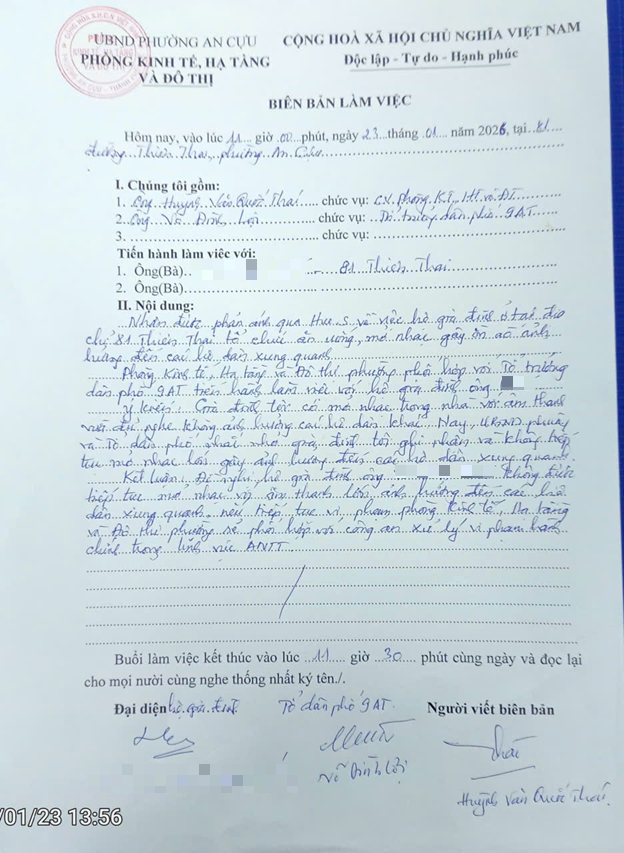 UBND PHƯỜNG AN CỰU
PHÒNG KINH TẾ, HẠ TẦNG
VÀ ĐÔ THỊ
CỘNG HOÀ XÃ HỘI CHỦ NGHĨA VIỆT NAM
Độc lập - Tự do - Hạnh phúc
BIÊN BẢN LÀM VIỆC
Hôm nay, vào lúc 11 giờ 00 phút, ngày 23 tháng 01 năm 2026, tại 81
đường Thiên Thai, phường An Cựu
I. Chúng tôi gồm:
1. Ông Huỳnh Văn Quốc Thái chức vụ: CV. Phòng KT, HT và ĐT
2. Ông Võ Đình Lợi chức vụ: Tổ trưởng dân phố 9AT
3. chức vụ:
Tiến hành làm việc với:
1. Ông(Bà) 81 Thiên Thai
2. Ông(Bà)
II. Nội dung:
Nhận được phản ánh qua Hue.S về việc hộ gia đình ở tại địa
chỉ 81 Thiên Thai tổ chức ăn uống, mở nhạc gây ồn ào ảnh
hưởng đến các hộ dân xung quanh.
Phòng Kinh tế, Hạ tầng và Đô thị phường phối hợp với Tổ trưởng
dân phố 9AT tiến hành làm việc với hộ gia đình ông
Ý kiến: Gia đình tôi có mở nhạc trong nhà với âm thanh
vừa đủ nghe không ảnh hưởng các hộ dân khác. Nay, UBND phường
và Tổ dân phố nhắc nhở gia đình tôi ghi nhận và không tiếp
tục mở nhạc lớn gây ảnh hưởng đến các hộ dân xung quanh.
Kết luận: Đề nghị hộ gia đình ông không được
tiếp tục mở nhạc với âm thanh lớn, ảnh hưởng đến các hộ
dân xung quanh. nếu tiếp tục vi phạm phòng Kinh tế, Hạ tầng
và Đô thị phường sẽ phối hợp với công an xử lý vi phạm hành
chính trong lĩnh vực ANTT.
Buổi làm việc kết thúc vào lúc 11 giờ 30 phút cùng ngày và đọc lại
cho mọi nười cùng nghe thống nhất ký tên./.
Đại diện hộ gia đình Tổ dân phố 9AT Người viết biên bản
Võ Đình Lợi
Huỳnh Văn Quốc Thái
/01/23 13:56